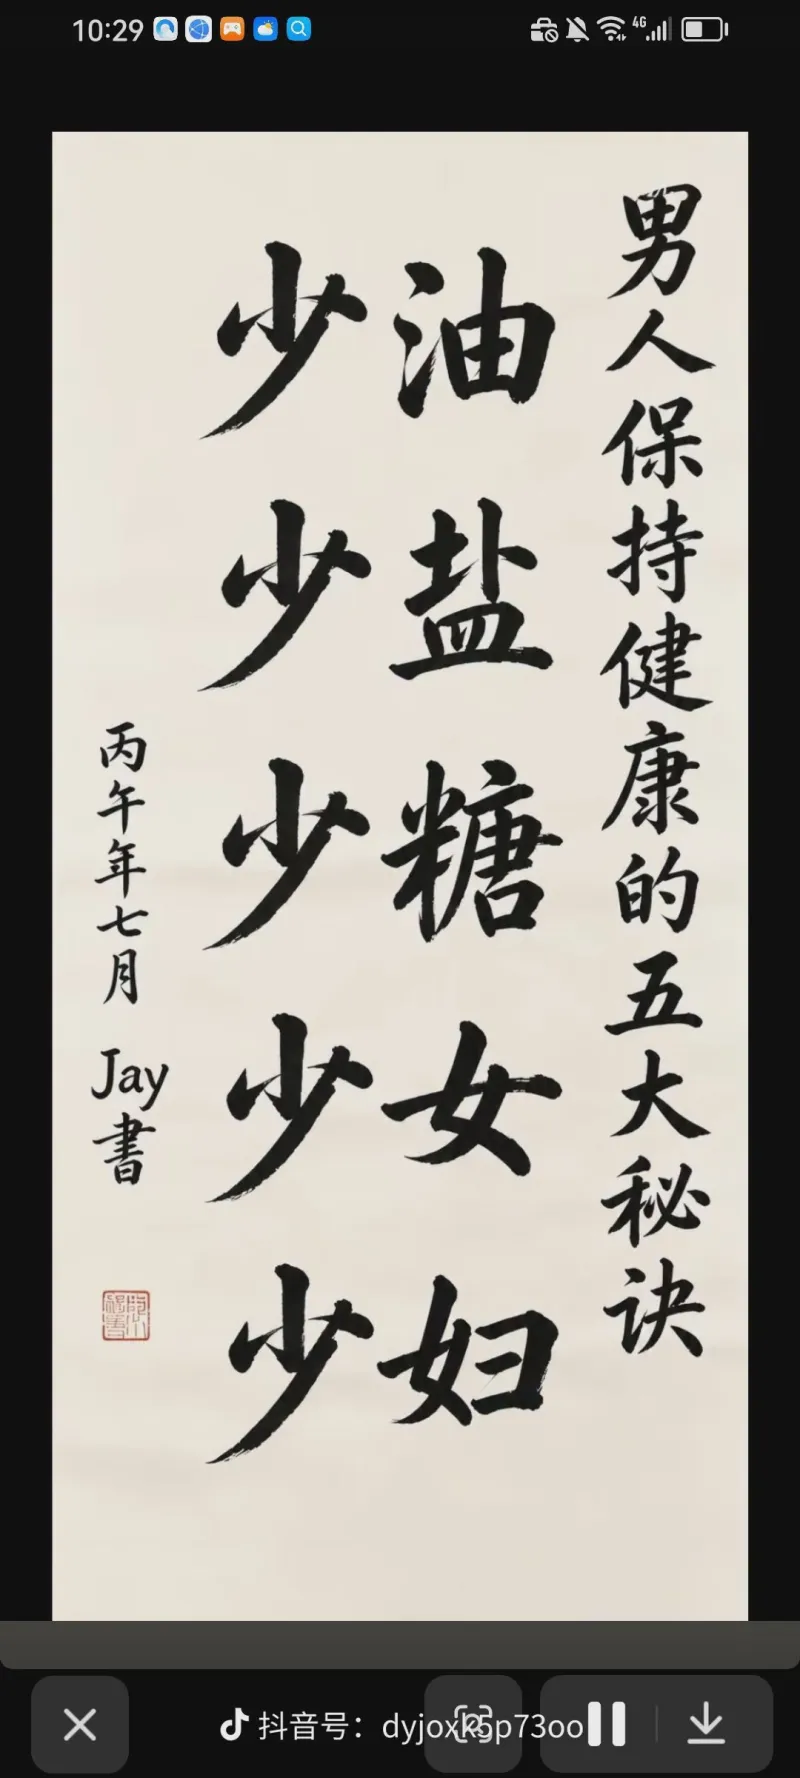 10:29
4G
男人保持健康的五大秘诀
油盐糖女妇
少少少少少
丙午年七月 Jay書
抖音号：dyjoxk5p73oo